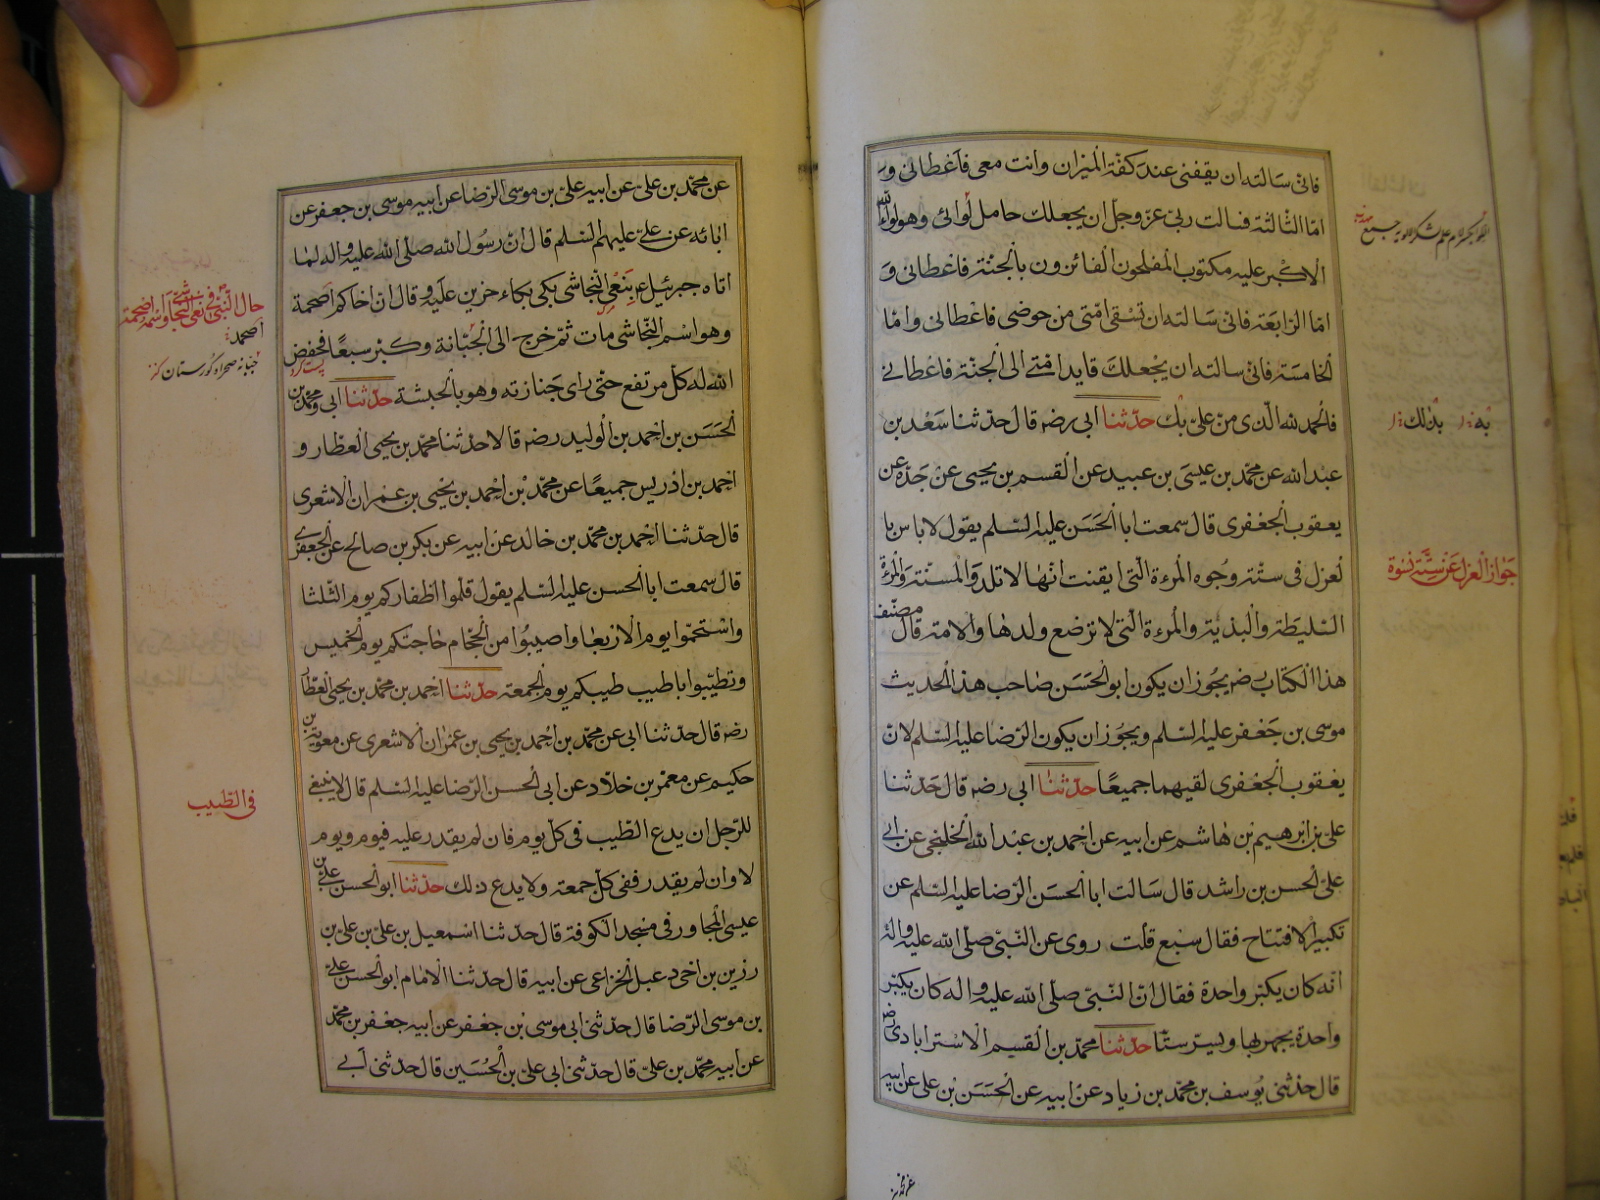 فانى سالته ان يقفنى عند كفة الميزان وانت معى فاعطانى و
امّا الثالثة فسالت ربى عزّ وجلّ ان يجعلك حامل لوائى وهو لواء الله
الاكبر عليه مكتوب المفلحون الفائزون بالجنة فاعطانى و
امّا الرابعة فانى سالته ان تسقى امّتى من حوضى فاعطانى وامّا
الخامسة فانى سالته ان يجعلك قايد امتى الى الجنة فاعطانى
فالحمد لله الّذى منّ علىّ بك حدّثنا ابى رضه قال حدّثنا سعد بن
عبد الله عن محمّد بن عيسى بن عبيد عن القسم بن يحيى عن جدّه عن
يعقوب الجعفرى قال سمعت ابا الحسن عليه السّلم يقول لا باس با
لعزل فى ستّة وجوه المرءة الّتى ايقنت انّها لا تلد والمسنّة والمرءة
السّليطة والبذيّة والمرءة الّتى لا ترضع ولدها والامة قال مصنّف
هذا الكتاب رضه يجوز ان يكون ابو الحسن صاحب هذا الحديث
موسى بن جعفر عليه السّلم ويجوز ان يكون الرّضا عليه السّلم لانّ
يعقوب الجعفرى لقيهما جميعًا حدّثنا ابى رضه قال حدّثنا
علىّ بن ابرهيم بن هاشم عن ابيه عن احمد بن عبد الله الخلنجى عن ابى
علىّ الحسن بن راشد قال سالت ابا الحسن الرّضا عليه السّلم عن
تكبير الافتتاح فقال سبع قلت روى عن النّبىّ صلّى الله عليه واله
انّه كان يكبّر واحدة فقال انّ النّبىّ صلّى الله عليه واله كان يكبّر
واحدة يجهر بها ويسرّ ستّا حدّثنا محمّد بن القسم الاسترابادى رضه
قال حدّثنى يوسف بن محمّد بن زياد عن ابيه عن الحسن بن على عن ابيه
به
بذلك
جواز العزل عن ستّة نسوة
عن محمّد بن علىّ عن ابيه علىّ بن موسى الرّضا عن ابيه موسى بن جعفر عن
ابائه عن علىّ عليهم السّلم قال انّ رسول الله صلّى الله عليه واله لمّا
اتاه جبرئيل بنعى النجاشى بكى بكاء حزين عليه وقال ان اخاكم اصحمة
وهو اسم النّجاشى مات ثمّ خرج الى الجبّانة وكبّر سبعًا فخفض
الله له كلّ مرتفع حتّى راى جنازته وهو بالحبشة حدّثنا ابى ومحمّد بن
الحسن بن احمد بن الوليد رضه قالا حدّثنا محمّد بن يحيى العطّار و
احمد بن ادريس جميعًا عن محمّد بن احمد بن يحيى بن عمران الاشعرى
قال حدّثنا احمد بن محمّد بن خالد عن ابيه عن بكر بن صالح عن الجعفرى
قال سمعت ابا الحسن عليه السّلم يقول قلّموا اظفاركم يوم الثّلثا
واستحمّوا يوم الاربعا واصيبوا من الحجّام حاجتكم يوم الخميس
وتطيّبوا باطيب طيبكم يوم الجمعة حدّثنا احمد بن محمّد بن يحيى العطّار
رضه قال حدّثنا ابى عن محمّد بن احمد بن يحيى بن عمران الاشعرى عن معوية بن
حكيم عن معمر بن خلّاد عن ابى الحسن الرّضا عليه السّلم قال لا ينبغى
للرّجل ان يدع الطّيب فى كلّ يوم فان لم يقدر عليه فيوم ويوم
لا وان لم يقدر ففى كلّ جمعة ولا يدع ذلك حدّثنا ابو الحسن علىّ بن
عيسى المجاور فى مسجد الكوفة قال حدّثنا اسمعيل بن علىّ بن علىّ بن
رزين بن اخى دعبل الخزاعى عن ابيه قال حدّثنا الامام ابو الحسن علىّ
بن موسى الرّضا قال حدّثنى ابى موسى بن جعفر عن ابيه جعفر بن محمّد
عن ابيه محمّد بن علىّ قال حدّثنى ابى علىّ بن الحسين قال حدّثنى ابى
اصحمه
جبانه صحرا و كورستان كنز
فى الطّيب